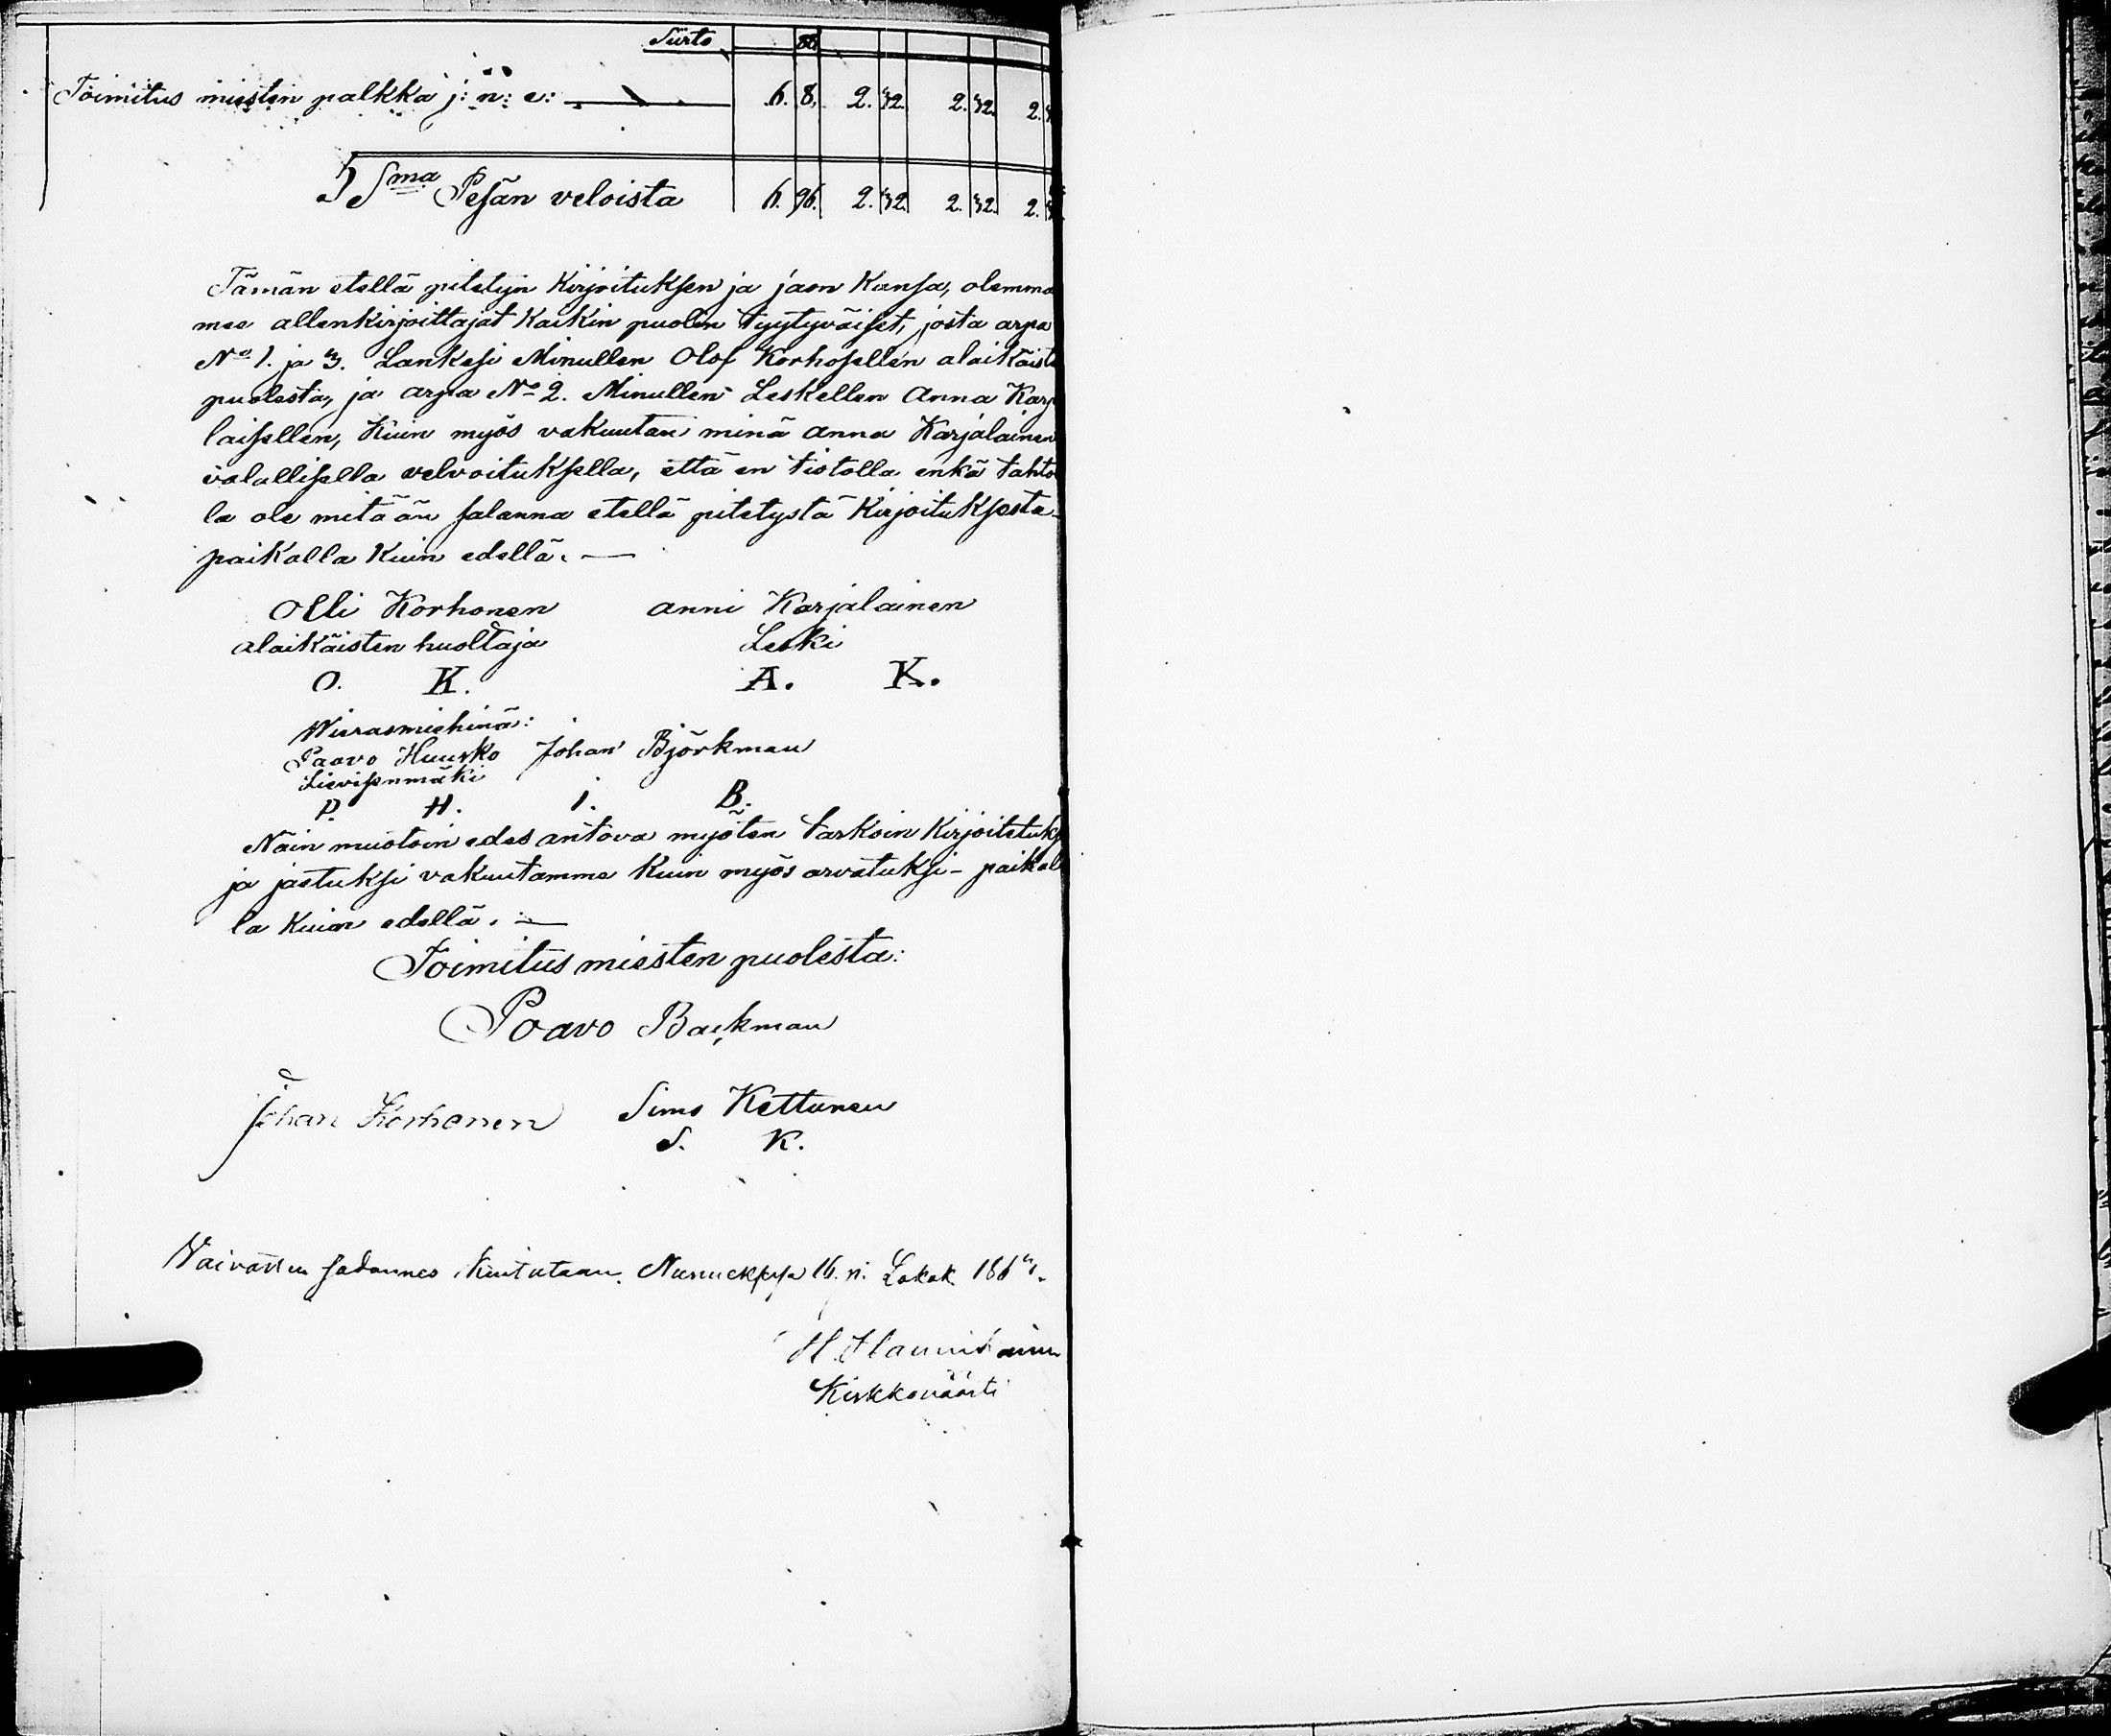 Siirto 88
Toimitus miesten palkka j: n: e: 6. 8. 2. 32. 2. 32. 2.
Sma Pesän veloista 6. 96. 2. 32. 2. 32. 2.
Tämän etellä pitetyn Kirjoituksen ja jaon Kansa, olemma
mee allenkirjoittajat Kaikin puolin tyytyväiset, josta arpa
No 1. ja 3. Lankesi Minullen Olof Korhosellen alaikäist
puolesta, ja arpa No 2. Minullen Leskellen Anna Karja
laisellen, Kuin myös vakuutan minä Anna Karjalainen
valallisella velvoituksella, että en tiotolla enkä tahto
la ole mitään salanna etellä pitetystä Kirjoituksesta
paikalla Kuin edellä. —
Olli Korhonen Anni Karjalainen
alaikäisten huoltaja Leski
O. K. A. K.
Wierasmiehinä:
Paavo Huusko Johan Björkman
Lievisenmäki
P. H. I. B.
Näin muotoin edes antova myöten tarkoin Kirjoitetuks
ja jaetuksi vakuutamme Kuin myös arvatuksi - paikal
la Kuin edellä. —
Toimitus miesten puolesta:
Poavo Backman
Johan Korhonen Simo Kettunen
S. K.
Waivasten sadannes Kuitataan. 16. p: Lokak. 1863.
H. Hannikainen
Kirkkoväärti